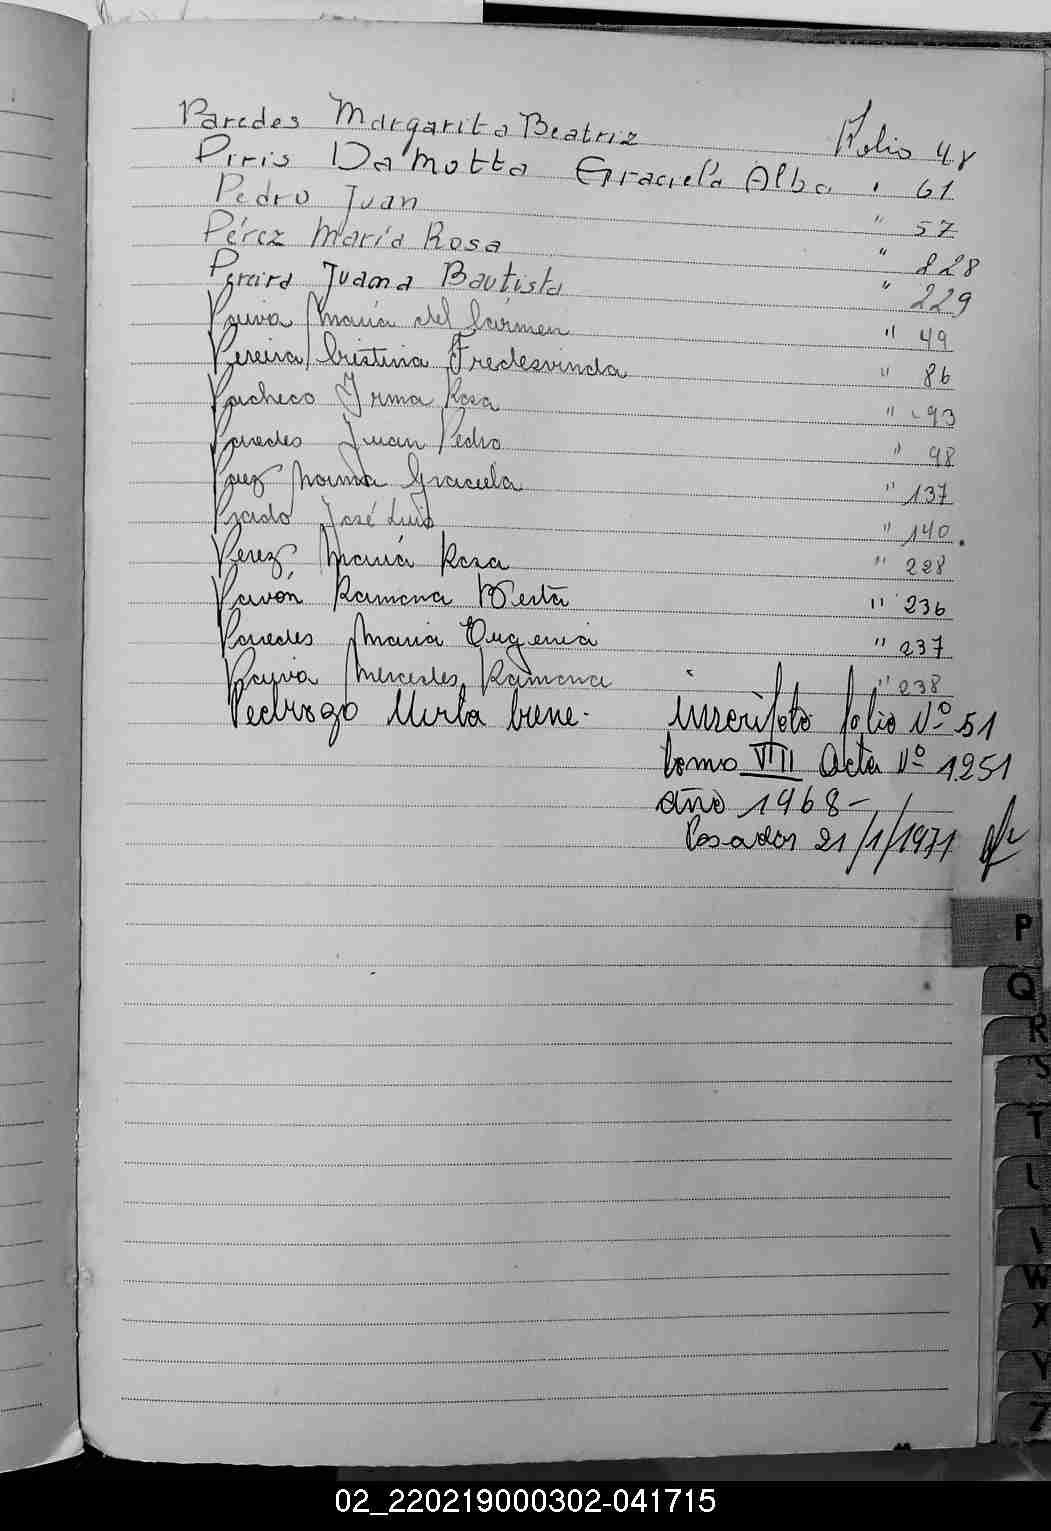 Paredes Margarita Beatriz Folio 48
Piris Da Motta Graciela Alba " 61
Pedro Juan " 57
Pérez María Rosa " 228
Pereira Juana Bautista " 229
Paiva María del Cármen " 49
Pereira Cristina Fredesvinda " 86
Pacheco Irma Rosa " 93
Paredes Juan Pedro " 98
Paez Norma Graciela " 137
Prado José Luis " 140.
Perez María Rosa " 228
Pavón Ramona Berta " 236
Paredes Maria Eugenia " 237
Paiva Mercedes Ramona " 238
Pedrozo Mirta Irene. inscripto folio Nº 51
tomo VIII Acta Nº 1251
año 1968-
Posadas 21/1/1971
P
Q
R
S
T
W
X
Y
Z
02_220219000302-041715